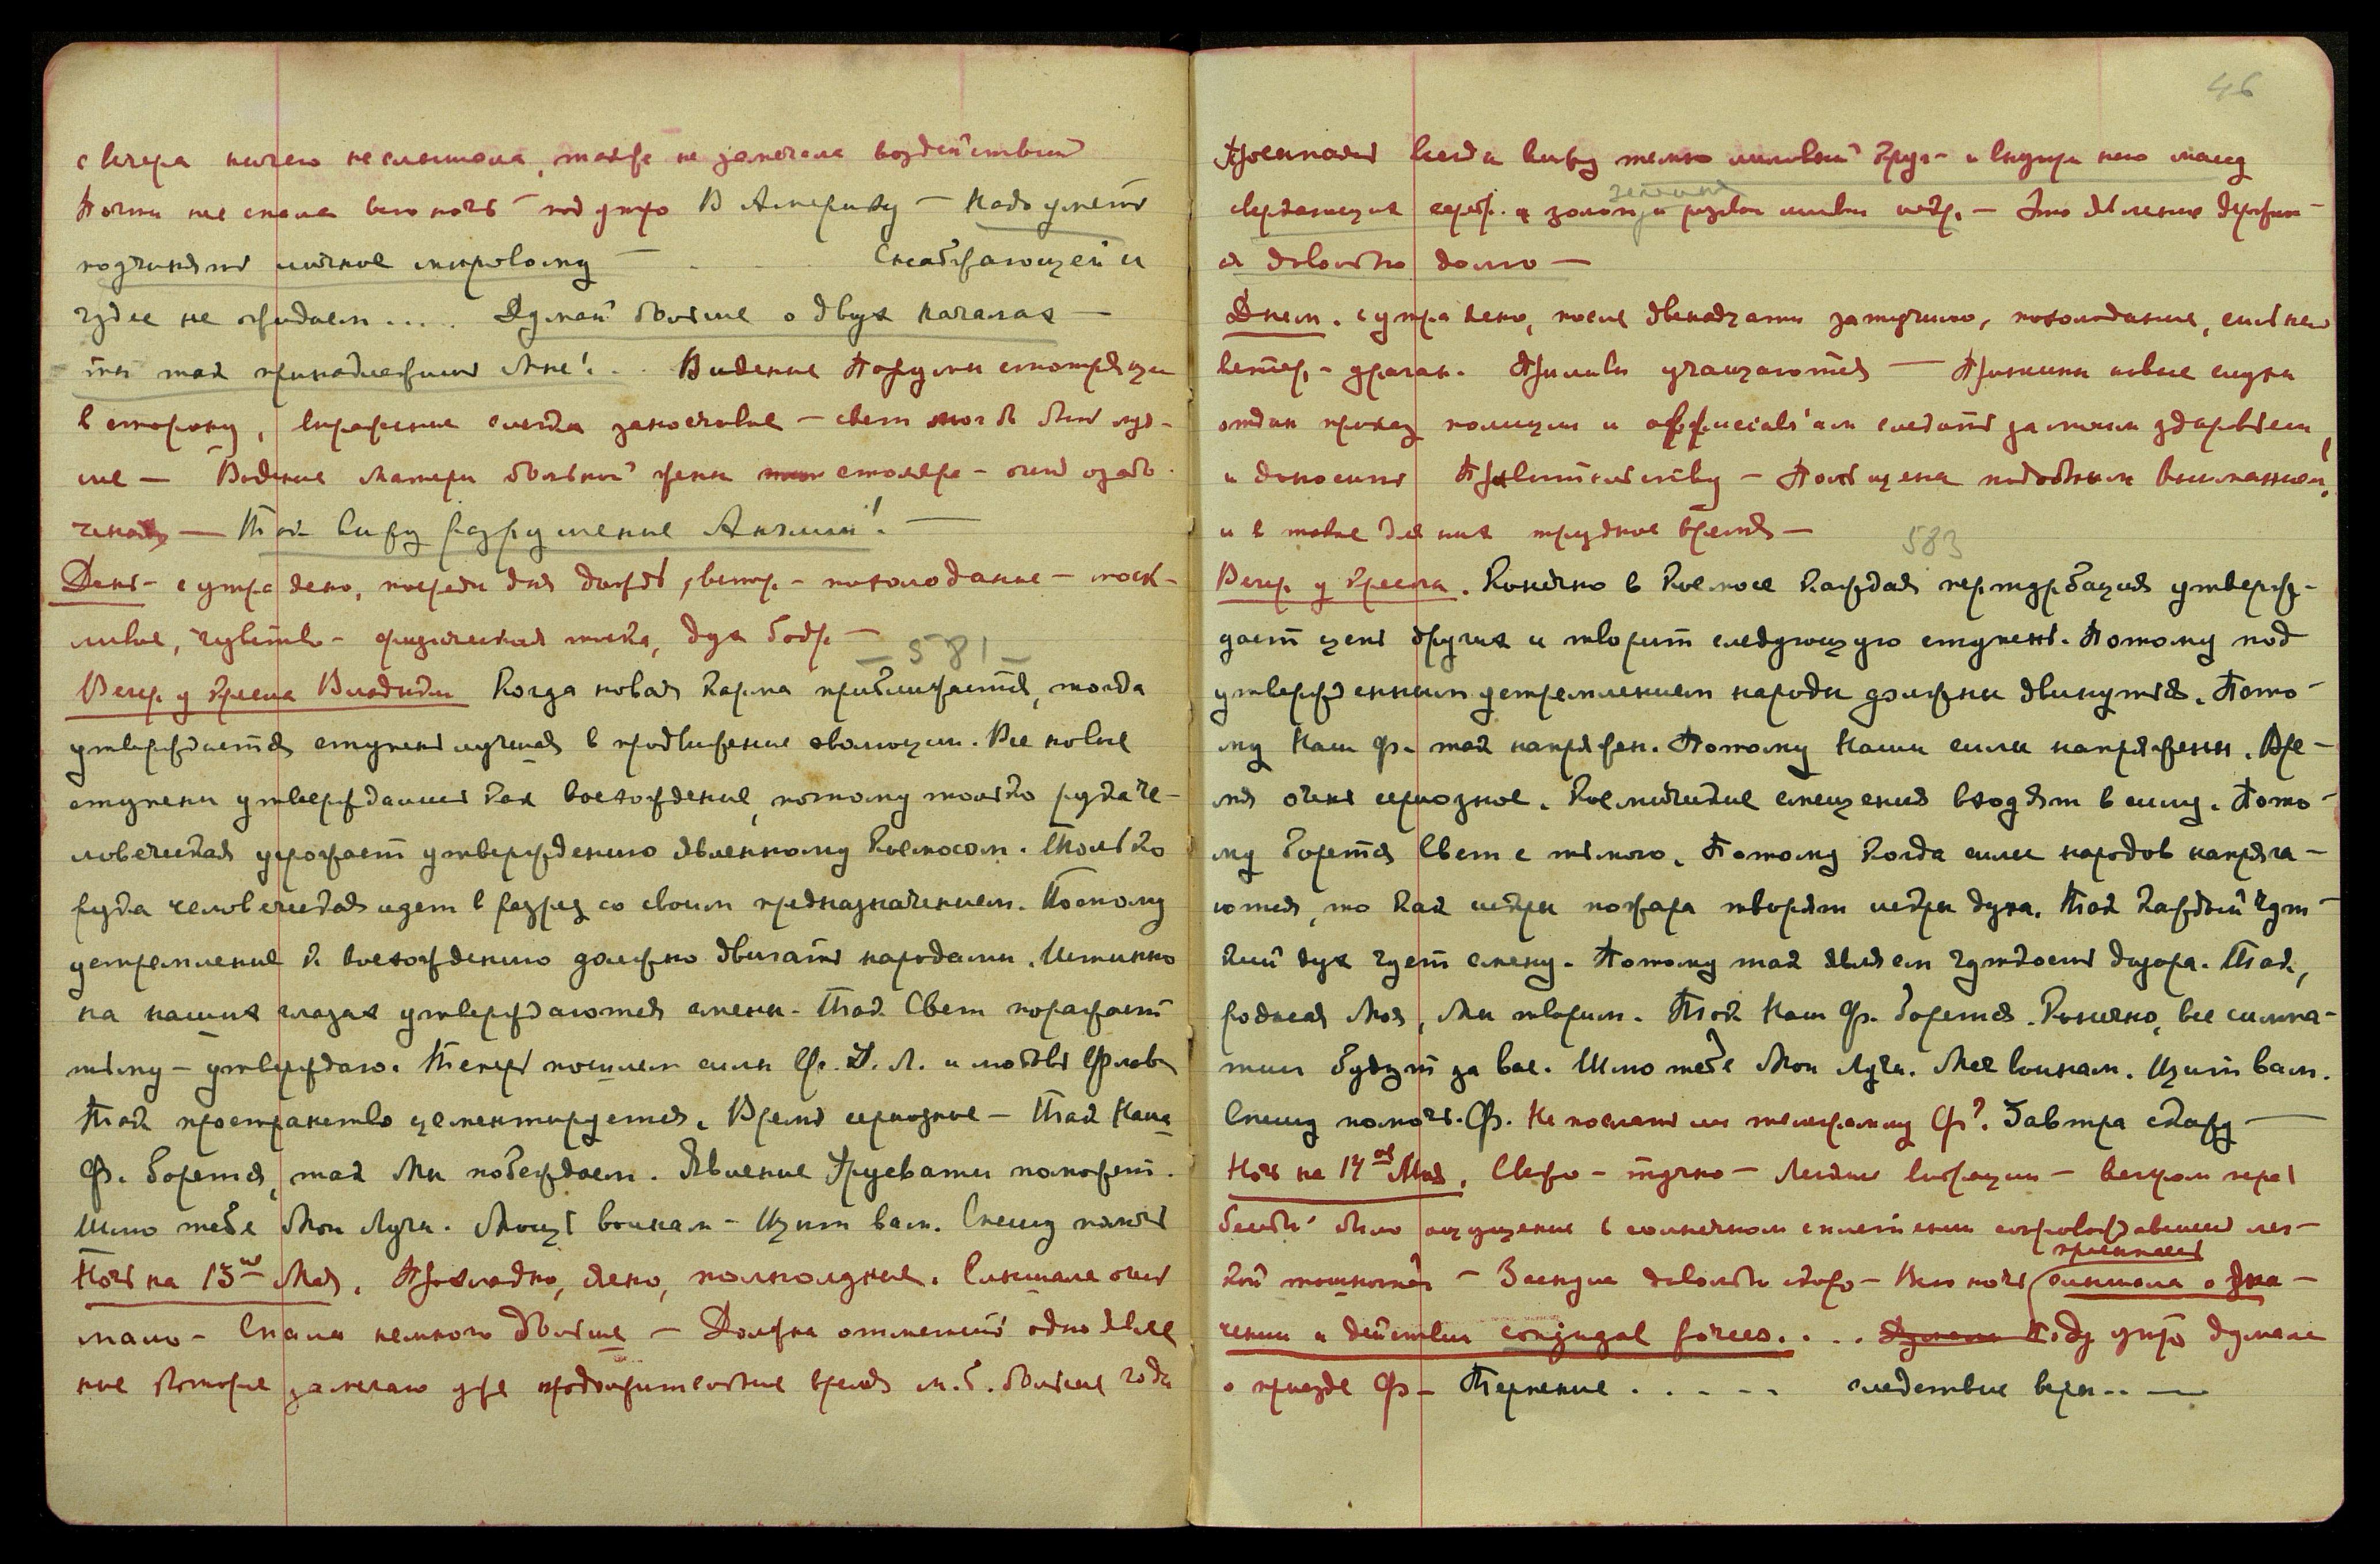 с вечера ничего не слышала, также не замечала воздействий
Почти не спала всю ночь – под утро В Америку – Надо уметь
подчинять личное мировому – Снабжающей и
чудее не ожидаем.... Думай больше о двух началах –
ты так принадлежишь Мне!.. Видение Порумы смотрящи
в сторону, выражение слегка заносчивое – свет мог б. быть луч-
ше – Видение Матери больной жены столяра – очень озабо-
чена – Так вижу разрушение Англии! –
День – с утра ясно, посреди дня дождь, ветр – похолодание – тоск-
ливое, чувство – физическая тоска, дух бодр –
– 581 –
Вечер у Кресла Владыки Когда новая карма приближается, тогда
утверждается ступень лучшая в продвижение эволюции. Все новые
ступени утверждались как восхождение, потому только рука че-
ловеческая угрожает утверждению явленному Космосом. Только
рука человеческая идет в разрез со своим предназначением. Потому
устремление к восхождению должно двигать народами. Истинно
на наших глазах утверждаются смены. Так Свет поражает
тьму – утверждаю. Теперь пошлем силы Ф. Д. Л. и любовь Флав
Так пространство цементируется. Время серьозное – Так Наш
Ф. борется, так Мы побеждаем. Явление Урусвати поможет.
Шлю тебе Мои Лучи. Мощь воинам – Щит вам. Спешу помочь
Ночь на 13ое Мая. Прохладно, ясно, полнолуние. Слышала очень
мало – Спала немного больше – Должна отметить одно явле
ние которое замечаю уже продолжительное время м.б. больше года
46
Просыпаясь всегда вижу темно лиловый круг – и внутри него массу
зеленых
сверкающих серебр. и золот, и розвых лилвых искр. – Это явление держит-
ся довольно долго –
Днем. с утра ясно, после двенадцати затучило, похолодание, сильный
ветер, – ураган. Приливы учащаются – Прислины новые слухи
отдан приказ полиции и officials'ам следить за моим здоровьем
и доносить Правительству – Польщена подобным вниманием!
и в такое для них трудное время –
583
Вечер у Кресла. Конечно в Космосе каждая пертурбация утверж-
дает цепь других и творит следующую ступень. Потому под
утвержденным устремлением народы должны двинуться. Пото-
му Наш Ф. так напряжен. Потому Наши силы напряжены. Вре-
мя очень серьозное. Космические смещения входят в силу. Пото-
му борется Свет с тьмою. Потому когда силы народов напряга-
ются, то как искры пожара творят искры духа. Так каждый чут-
кий дух чует смену. Потому так являем чуткость дозора. Так,
родная Моя, Мы творим. Так Наш Ф. борется. Конечно, все симпа-
тии будут за вас. Шлю тебе Мои Лучи. Меч воинам. Щит вам.
Спешу помочь. Ф. Не послать ли телеграмму Ф? Завтра скажу –
Ночь на 14ое Мая. Свежо – тучно – Легкие вибрации – вечером перед
беседой было ощущение в солнечном сплетении сопровождавшееся лег-
просыпаясь
кой тошнотой – Заснула довольно скоро – Всю ночь слышала о зна-
чении и действии conjugal forces.... Думала К ду утро думала
о приезде Ф – Терпение . . . . . следствие веры.. –